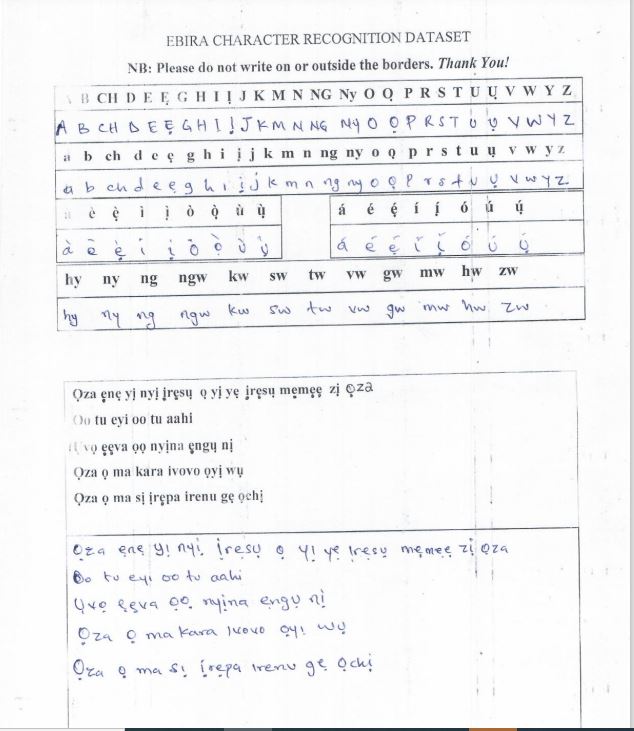 EBIRA CHARACTER RECOGNITION DATASET
NB: Please do not write on or outside the borders. Thank You!
A B CH D E Ẹ G H I Ị J K M N NG Ny O Ọ P R S T U Ụ V W Y Z
A B CH D E Ẹ G H I Ị J K M N NG Ny O Ọ P R S T U Ụ V W Y Z
a b ch d e ẹ g h i ị j k m n ng ny o ọ p r s t u ụ v w y z
a b ch d e ẹ g h i ị j k m n ng ny o ọ p r s t u ụ v w y z
à è ẹ̀ ì ị̀ ò ọ̀ ù ụ̀ á é ẹ́ í ị́ ó ú ụ́
à è ẹ̀ ì ị̀ ò ọ̀ ù ụ̀ á é ẹ́ í ị́ ó ú ụ́
hy ny ng ngw kw sw tw vw gw mw hw zw
hy ny ng ngw kw sw tw vw gw mw hw zw
Ọza ẹnẹ yị nyị ịrẹsụ ọ yị yẹ ịrẹsụ mẹmẹẹ zị ọza
Oo tu eyi oo tu aahi
Ụvọ ẹẹva ọọ nyịna ẹngụ nị
Ọza ọ ma kara ivovo ọyị wụ
Ọza ọ ma sị ịrẹpa irenu gẹ ọchị
Ọza ẹnẹ yị nyị ịrẹsụ ọ yị yẹ ịrẹsụ mẹmẹẹ zị ọza
Oo tu eyi oo tu aahi
Ụvọ ẹẹva ọọ nyịna engụ nị
Ọza ọ ma kara ivovo ọyị wụ
Ọza ọ ma sị ịrẹpa irenu gẹ ọchị